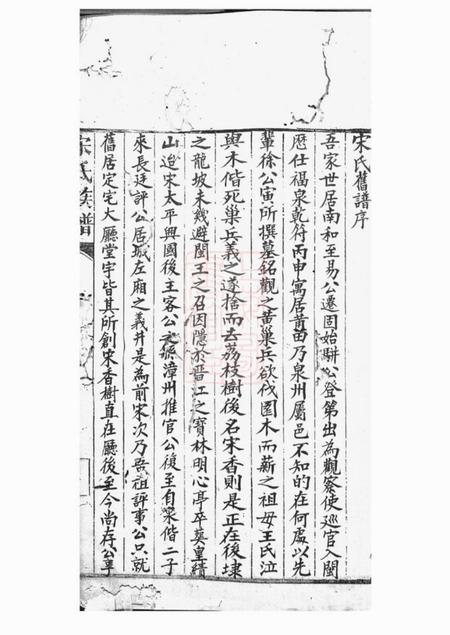 宋氏舊譜序
吾家世居南和至易公遷固始駢公登第出為觀察使廵官入閩
歷仕福泉乾符丙申寓居莆田乃泉州屬邑不知的在何處以先
輩徐公寅所撰墓銘觀之黄巢兵欲伐園木而薪之祖母王氏泣
與木偕死巢兵義之遂捨而去荔枝樹後名宋香則是正在後埭
之龍坡未幾避閩王之召因隱於晉江之寶林明心亭卒葬皇績
山迨宋太平興國後主客公漳州推官公復至自梁偕二子
來長廷評公居城左廂之義井是為前宋次乃祖評事公只就
舊居定宅大廳堂宇皆其所創宋香樹直在廳後至今尚存公事
宋氏族譜